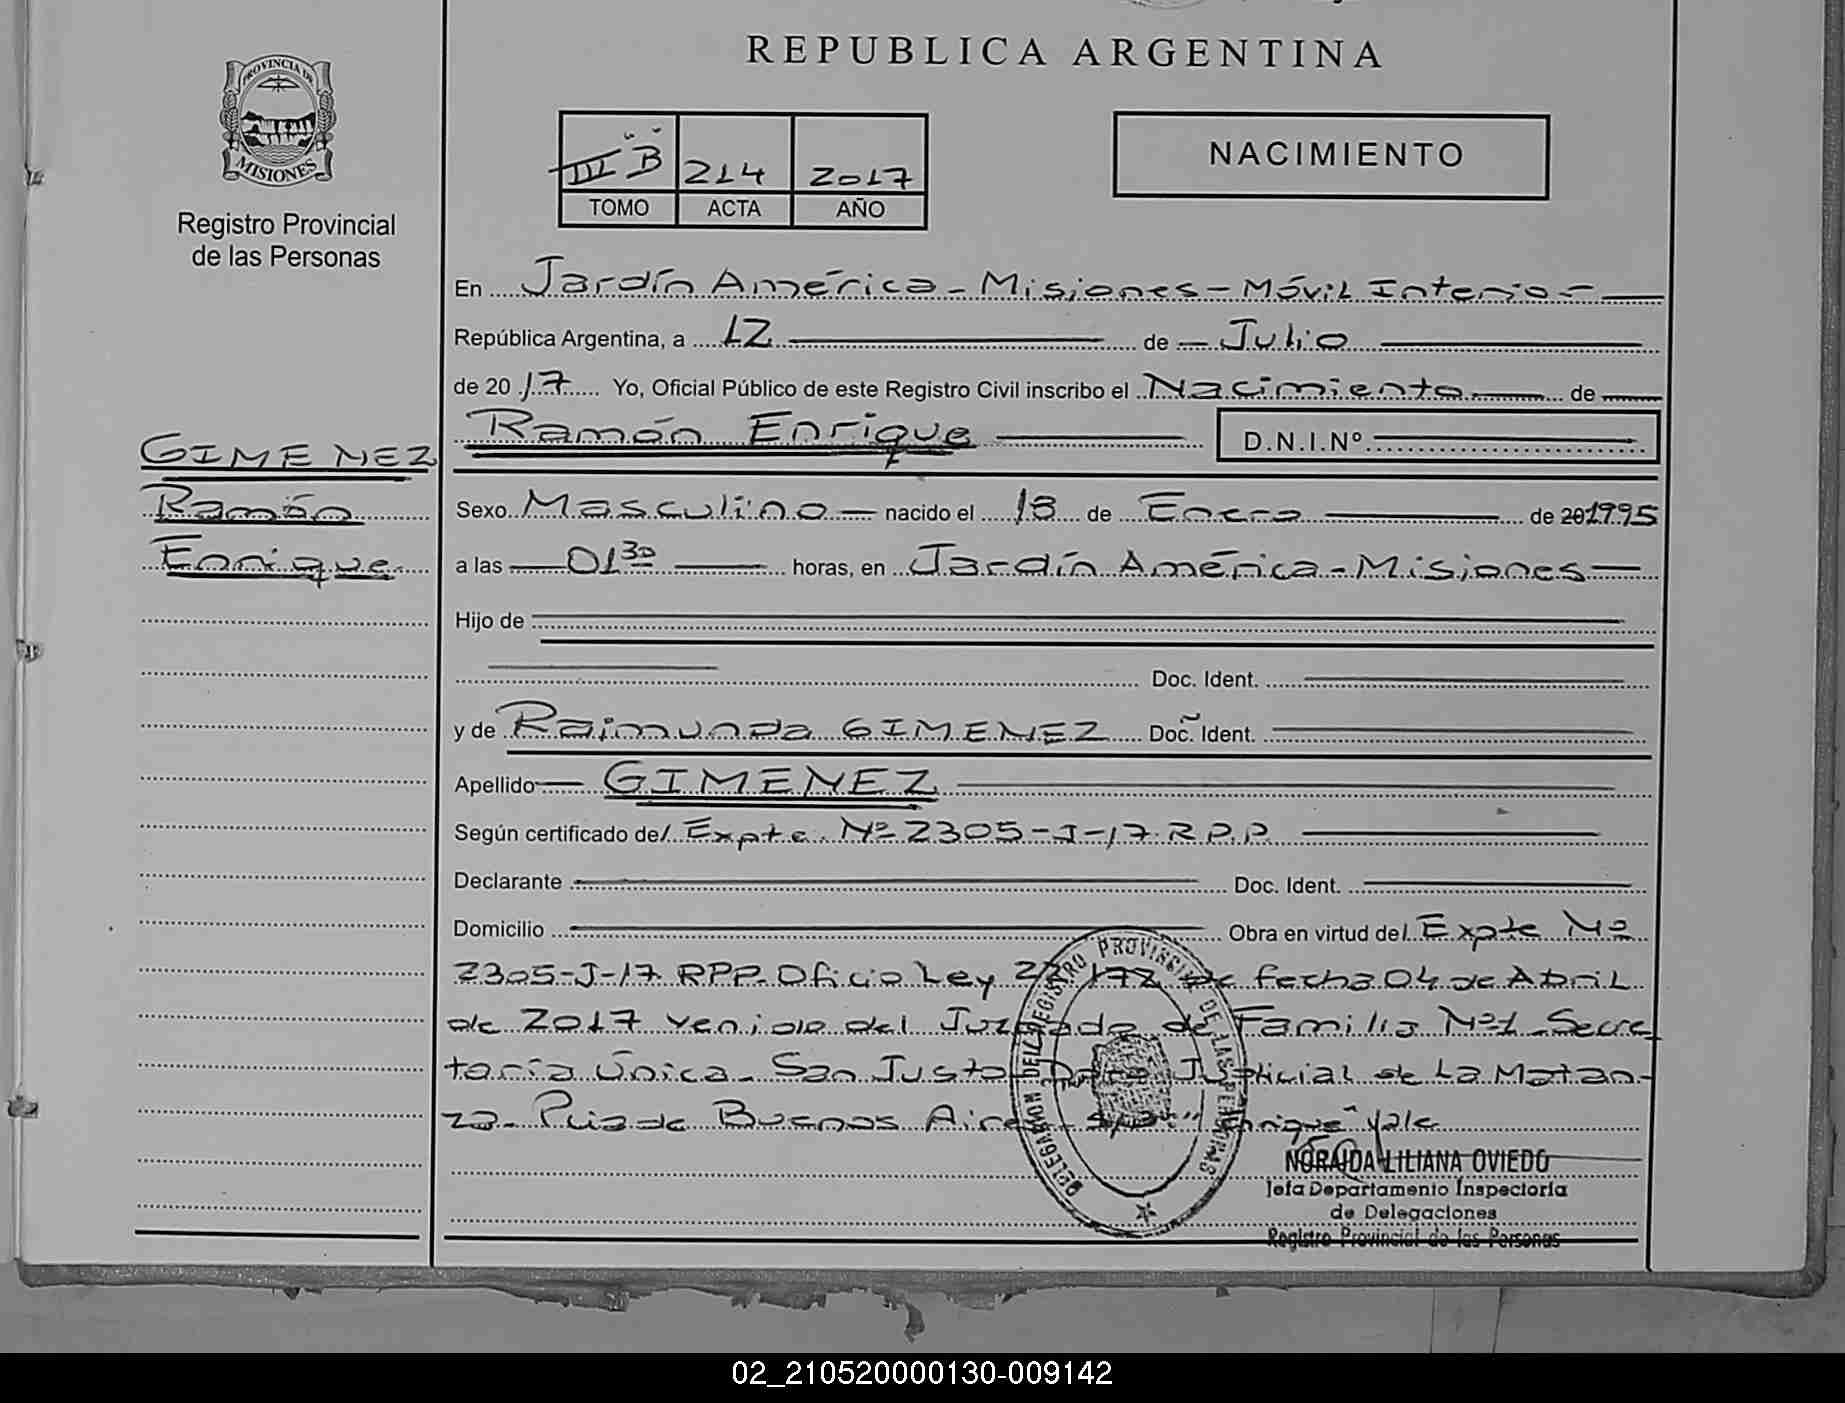 REPUBLICA ARGENTINA
PROVINCIA DE
MISIONES
Registro Provincial
de las Personas
III B 214 2017
TOMO ACTA AÑO
NACIMIENTO
En Jardín América - Misiones - Móvil Interior -
República Argentina, a 12 de Julio
de 2017 Yo, Oficial Público de este Registro Civil inscribo el Nacimiento de
Ramón Enrique D.N.I.Nº
GIMENEZ
Ramón
Enrique
Sexo Masculino nacido el 18 de Enero de 201995
a las 01 30 horas, en Jardín América - Misiones
Hijo de
Doc. Ident.
y de Raimunda GIMENEZ Doc. Ident.
Apellido GIMENEZ
Según certificado del Expte. Nº 2305-J-17. R.P.P.
Declarante Doc. Ident.
Domicilio Obra en virtud del Expte Nº
2305-J-17. RPP. Oficio Ley 22.172 de fecha 04 de Abril
de 2017 venido del Juzgado de Familia Nº1 - Secre
taría Única - San Justo - Judicial de La Matan-
za - Pcia de Buenos Aires "Enrique" Vale
DELEGACION DEL REGISTRO PROVINCIAL DE LAS PERSONAS
NORAIDA LILIANA OVIEDO
Jefa Departamento Inspectoría
de Delegaciones
Registro Provincial de las Personas
02_210520000130-009142